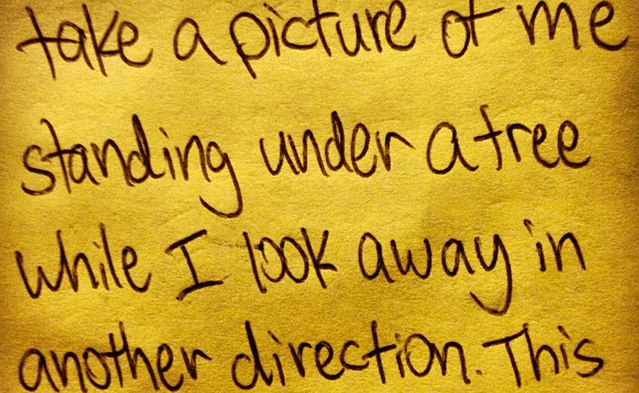 take a picture of me
standing under a tree
while I look away in
another direction. This